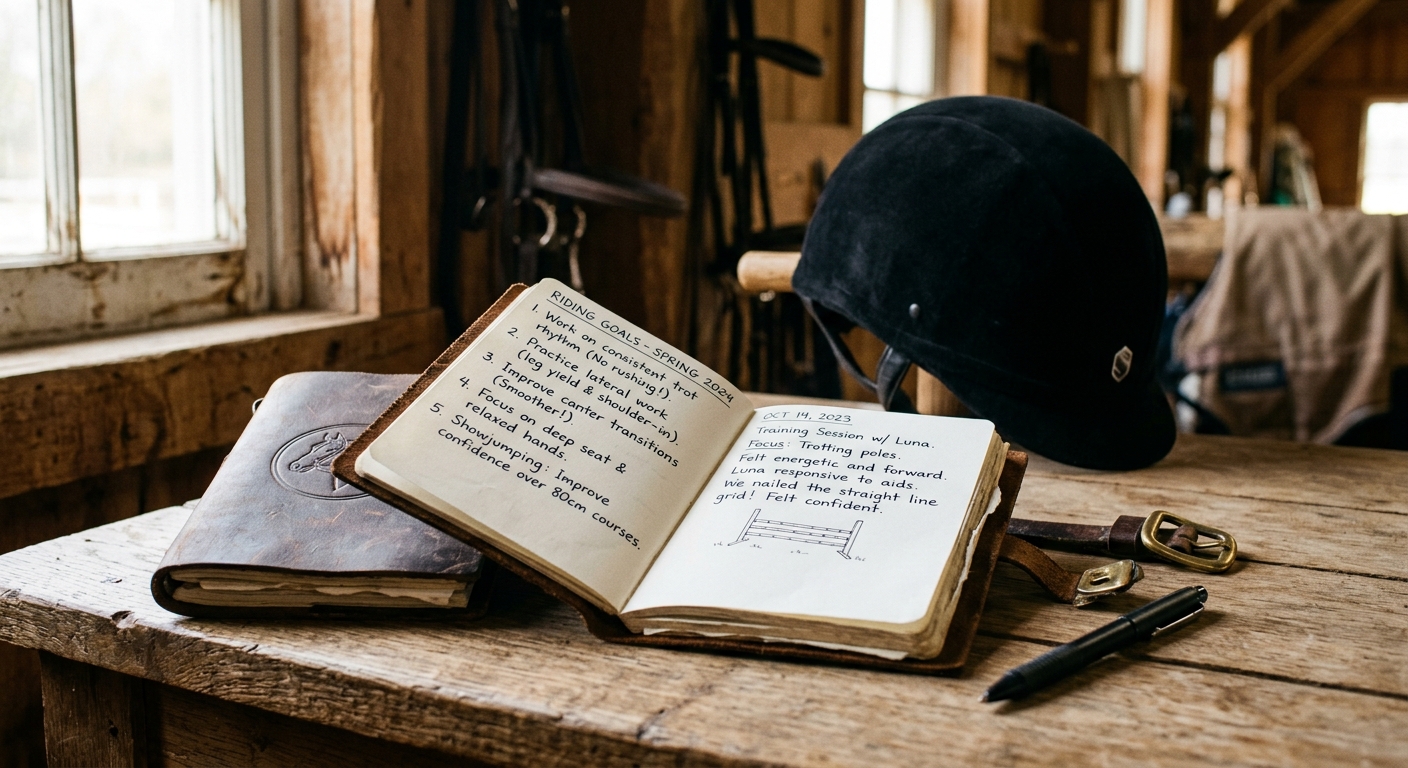 RIDING GOALS - SPRING 2024
1. Work on consistent trot
rhythm (No rushing!).
2. Practice lateral work
(leg yield & shoulder-in).
3. Improve canter transitions
(Smoother!).
4. Focus on deep seat &
relaxed hands.
5. Showjumping: Improve
confidence over 80cm courses.
OCT 14, 2023
Training Session w/ Luna.
Focus: Trotting poles.
Felt energetic and forward.
Luna responsive to aids.
We nailed the straight line
grid! Felt confident.